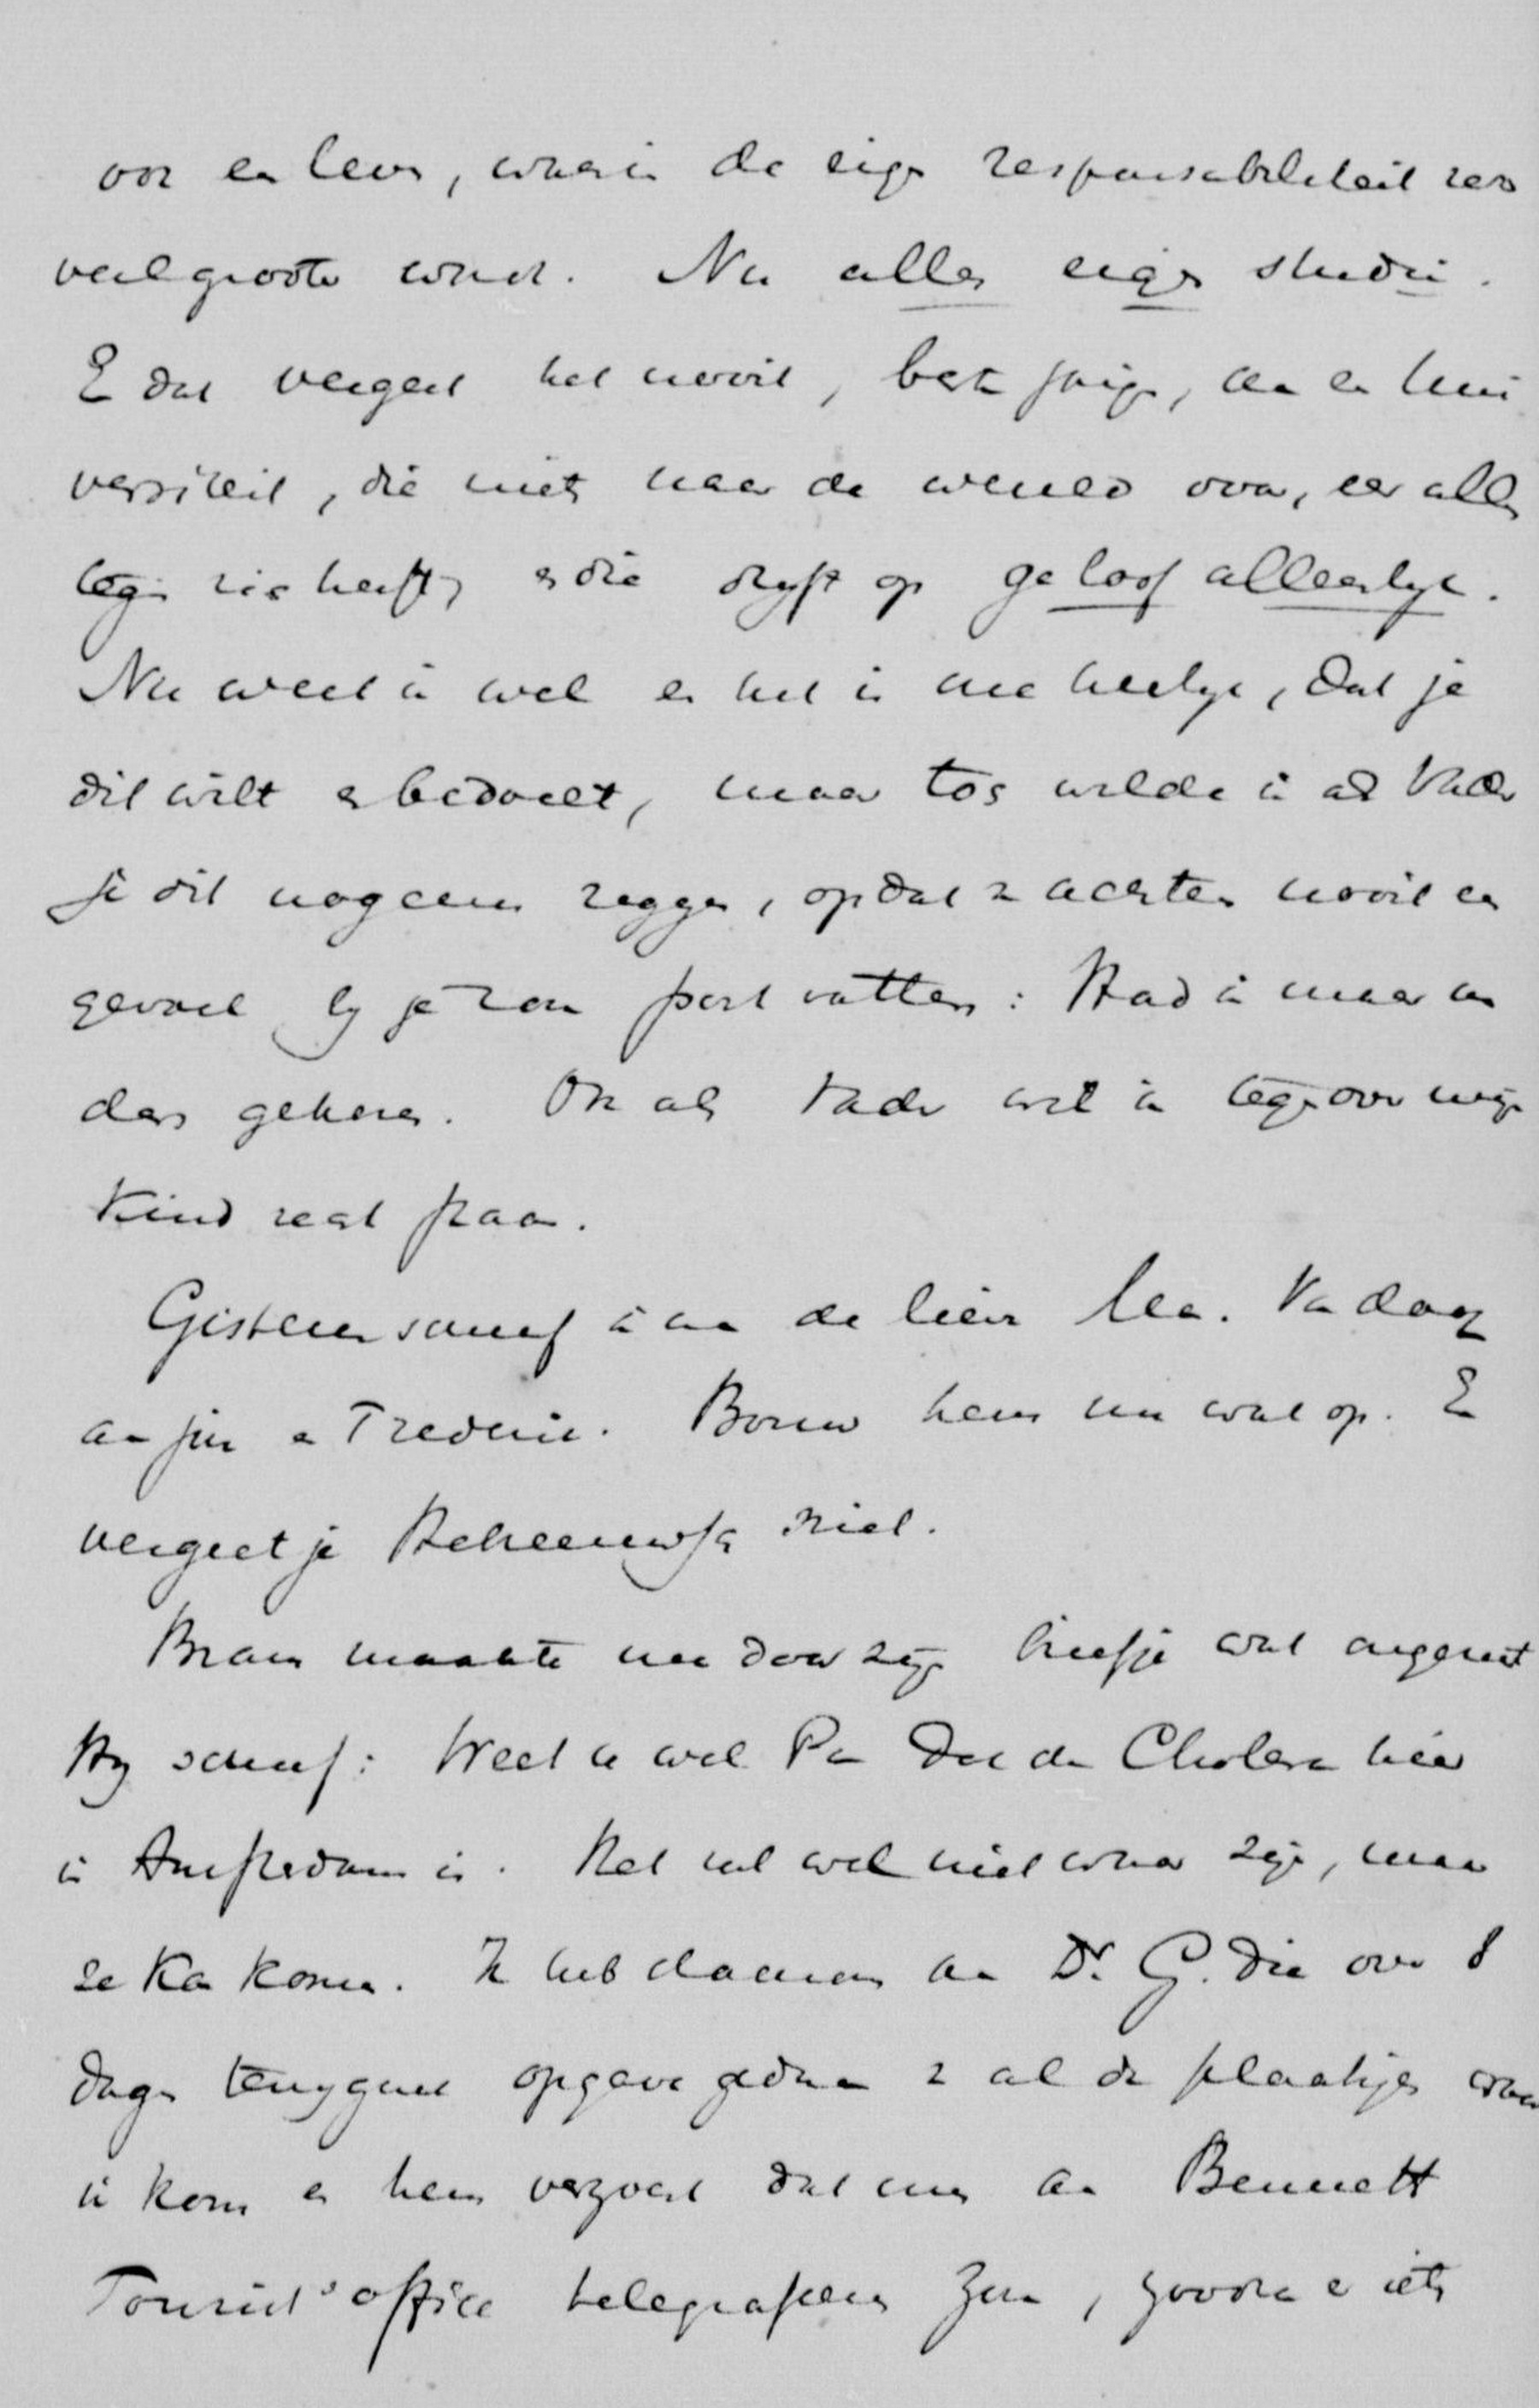 voor een leven, waarin de eigen responsabiliteit zoo
veel grooter wordt. Nu alles eigen studie.
En dat vergeet het nooit, beste jongen, aan een Uni
versiteit, die niets naar de wereld voor, en alles
tegen zich heeft, en die drijft op geloof alleenlijk.
Nu weet ik wel en het is me heerlijk, dat je
dit wilt en bedoelt, maar toch wilde ik als Vader
je dit nog eens zeggen, opdat er achter nooit een
gevoel bij je zou post vatten: Had ik maar an
ders gekozen. Ook als Vader wil ik tegenover mijn
Kind recht staan.
Gisteren schreef ik aan de lieve Ma. Vandaag
aan jou en Frederik. Bouw hem nu wat op. En
vergeet je Hebreeuwsch niet.
Bram maakte me door zijn briefje wat ongerust
Hij schreef: Weet u wel Pa dat de Cholera hier
in Amsterdam is. Het zal wel niet waar zijn, maar
ze kan komen. Ik heb daarom aan Dr. G. die over 8
dagen teruggaat opgave gedaan van al de plaatsjes waar
ik kom en hem verzocht dat men aan Bennett
Tourist's office telegrafeeren zou, zoodra er iets